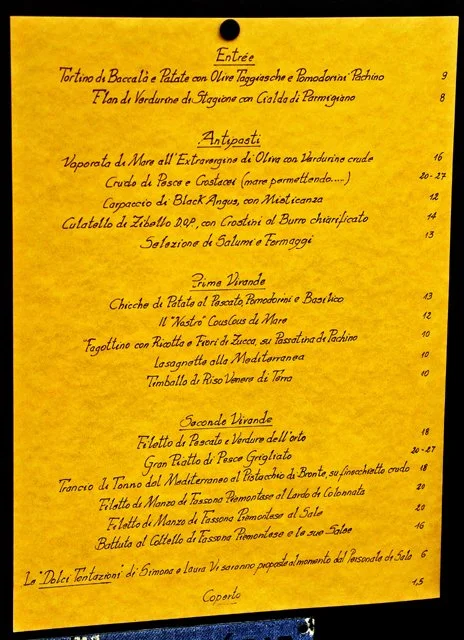 Entrée
Tortino di Baccalà e Patate con Olive Taggiasche e Pomodorini Pachino 9
Flan di Verdurine di Stagione con Cialda di Parmigiano 8
Antipasti
Vaporata di Mare all'Extravergine di Oliva con Verdurine crude 16
Crudo di Pesce e Crostacei (mare permettendo.....) 20-27
Carpaccio di Black Angus, con Misticanza 12
Culatello di Zibello D.O.P., con Crostini al Burro chiarificato 14
Selezione di Salumi e Formaggi 13
Prime Vivande
Chicche di Patate al Pescato, Pomodorini e Basilico 13
Il "Nostro" CousCous di Mare 12
"Fagottino con Ricotta e Fiori di Zucca, su Passatina di Pachino 10
Lasagnette alla Mediterranea 10
Timballo di Riso Venere di Terra 10
Seconde Vivande
Filetto di Pescato e Verdure dell'orto 18
Gran Piatto di Pesce Grigliato 20-27
Trancio di Tonno del Mediterraneo al Pistacchio di Bronte, su finocchietto crudo 18
Filetto di Manzo di Fassona Piemontese al Lardo di Colonnata 20
Filetto di Manzo di Fassona Piemontese al Sale 20
Battuta al Coltello di Fassona Piemontese e le sue Salse 16
Le "Dolci Tentazioni" di Simona e Laura Vi saranno proposte al momento dal Personale di Sala 6
Coperto 1,5